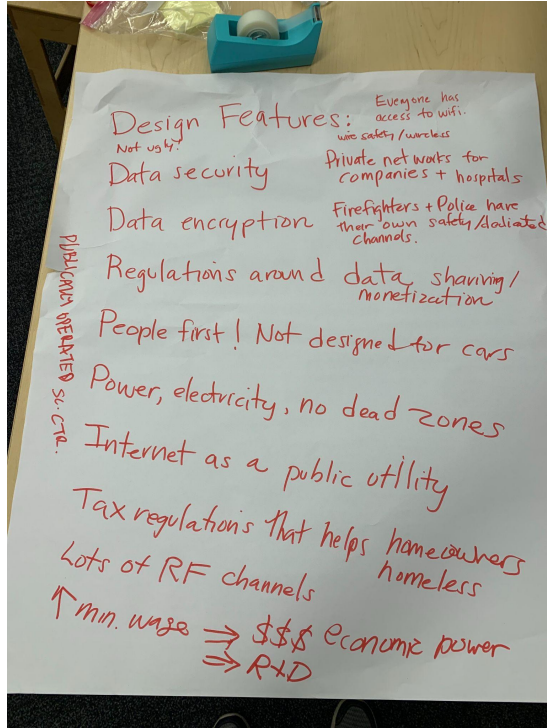 Design Features:
Everyone has
access to wifi.
Not ugly!
wire safety/wireless
Data security
Private networks for
companies + hospitals
Data encryption
Firefighters + Police have
their own safety/dedicated
channels.
Regulations around data sharining/
monetization
People first! Not designed for cars
Power, electricity, no dead zones
Internet as a public utility
Tax regulations that helps homeowners
homeless
Lots of RF channels
↑ min. wage ⇒ $$$ economic power
⇒ R+D
PUBLICALLY OPERATED SC. CTR.